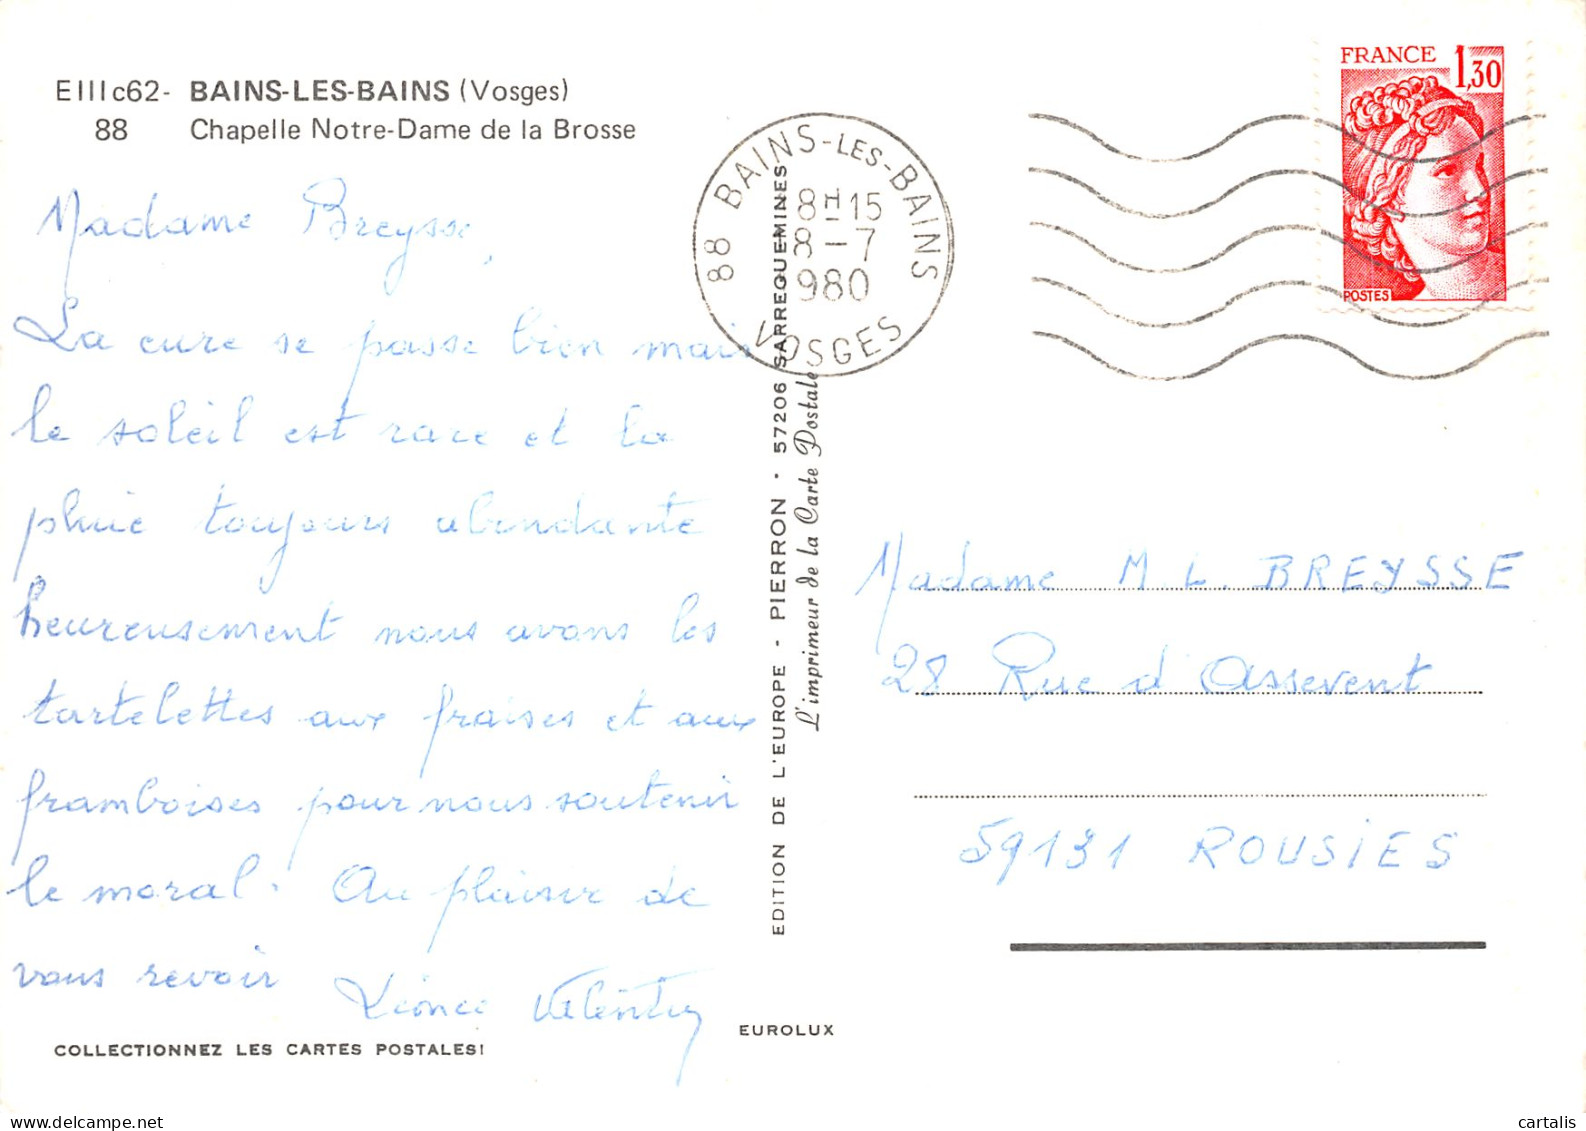 EIIIc62- BAINS-LES-BAINS (Vosges)
88 Chapelle Notre-Dame de la Brosse
Madame Breysse,
La cure se passe bien mais
le soleil est rare et la
pluie toujours abondante
heureusement nous avons les
tartelettes aux fraises et aux
framboises pour nous soutenir
le moral. Au plaisir de
vous revoir
Léonce Valentin
COLLECTIONNEZ LES CARTES POSTALES!
EUROLUX
EDITION DE L'EUROPE - PIERRON · 57206 SARREGUEMINES
L'imprimeur de la Carte Postale
88 BAINS-LES-BAINS
8H15
8-7
980
VOSGES
FRANCE 1,30
POSTES
Madame M.L. BREYSSE
28 Rue d'Assevent
59131 ROUSIES
cartalis